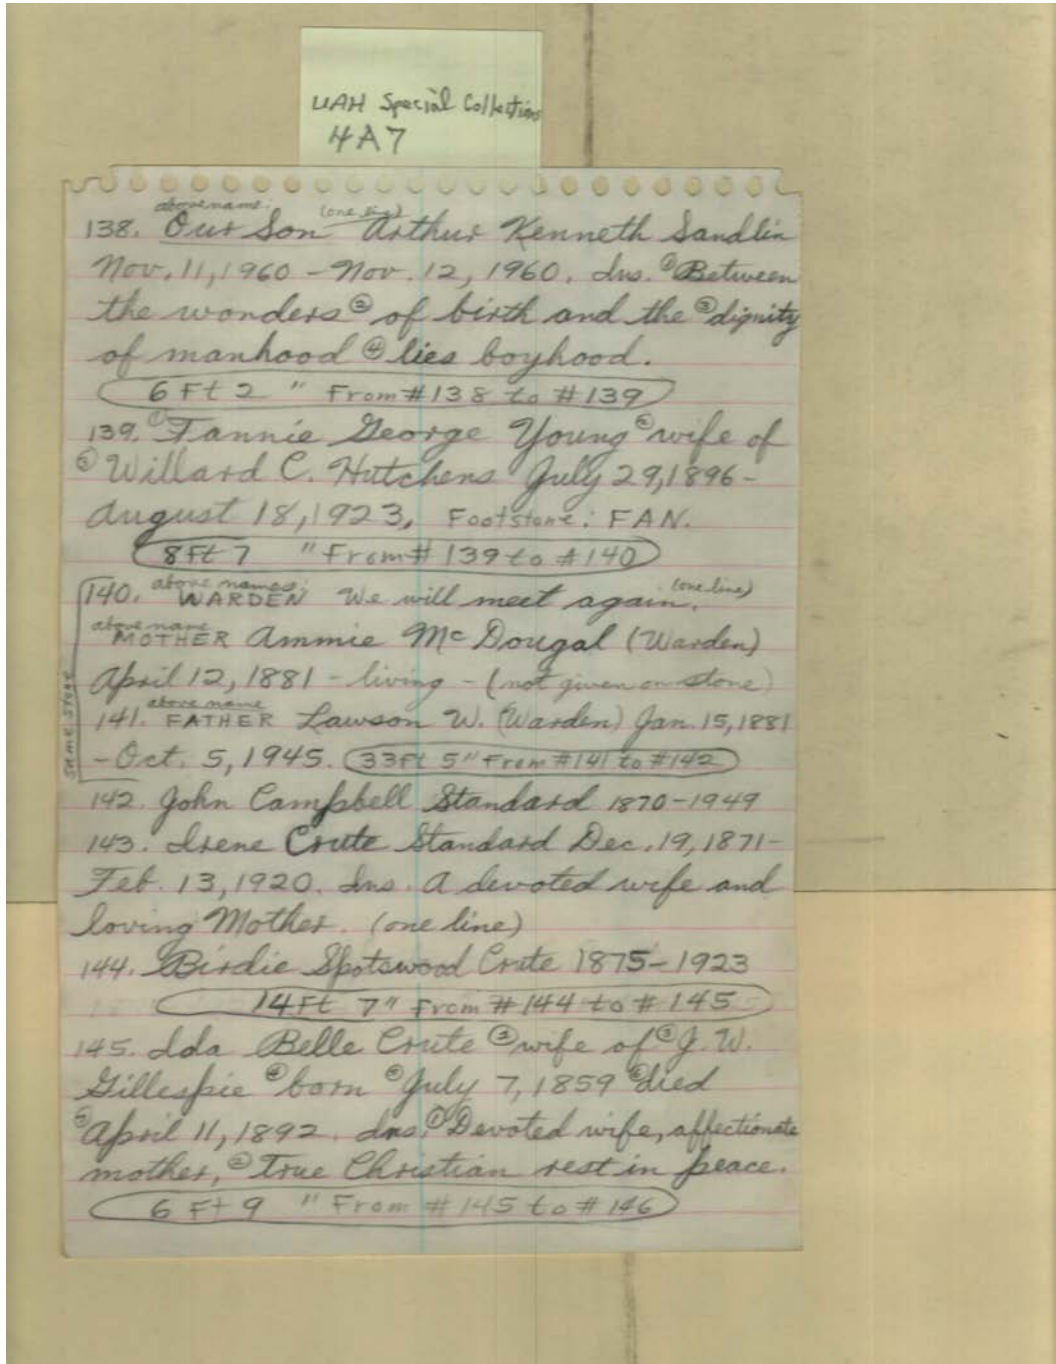 UAH Special Collections
4A7
above name: (one line)
138. Our Son Arthur Kenneth Sandlin
Nov. 11, 1960 - Nov. 12, 1960. Ins. ① Between
the wonders ② of birth and the ③ dignity
of manhood ④ lies boyhood.
6 Ft 2 " From #138 to #139
139. ① Fannie George Young ② wife of
③ Willard C. Hutchens July 29, 1896 -
August 18, 1923, Footstone: FAN.
8 Ft 7 " From # 139 to #140
above names: (one line)
140. WARDEN We will meet again.
above name
MOTHER Ammie McDougal (Warden)
April 12, 1881 - living - (not given on stone)
above name
141. FATHER Lawson W. (Warden) Jan. 15, 1881
- Oct. 5, 1945. 33 Ft 5" From #141 to #142
SAME STONE
142. John Campbell Standard 1870-1949
143. Irene Crute Standard Dec. 19, 1871-
Feb. 13, 1920. Ins. A devoted wife and
loving Mother. (one line)
144. Birdie Spotswood Crute 1875-1923
14 Ft 7" From #144 to # 145
145. Ida Belle Crute ② wife of ③ J. W.
Gillespie ④ born ⑤ July 7, 1859 ⑥ died
⑦ April 11, 1892. Ins. ① Devoted wife, affectionate
mother, ② True Christian rest in peace.
6 Ft 9 " From # 145 to # 146